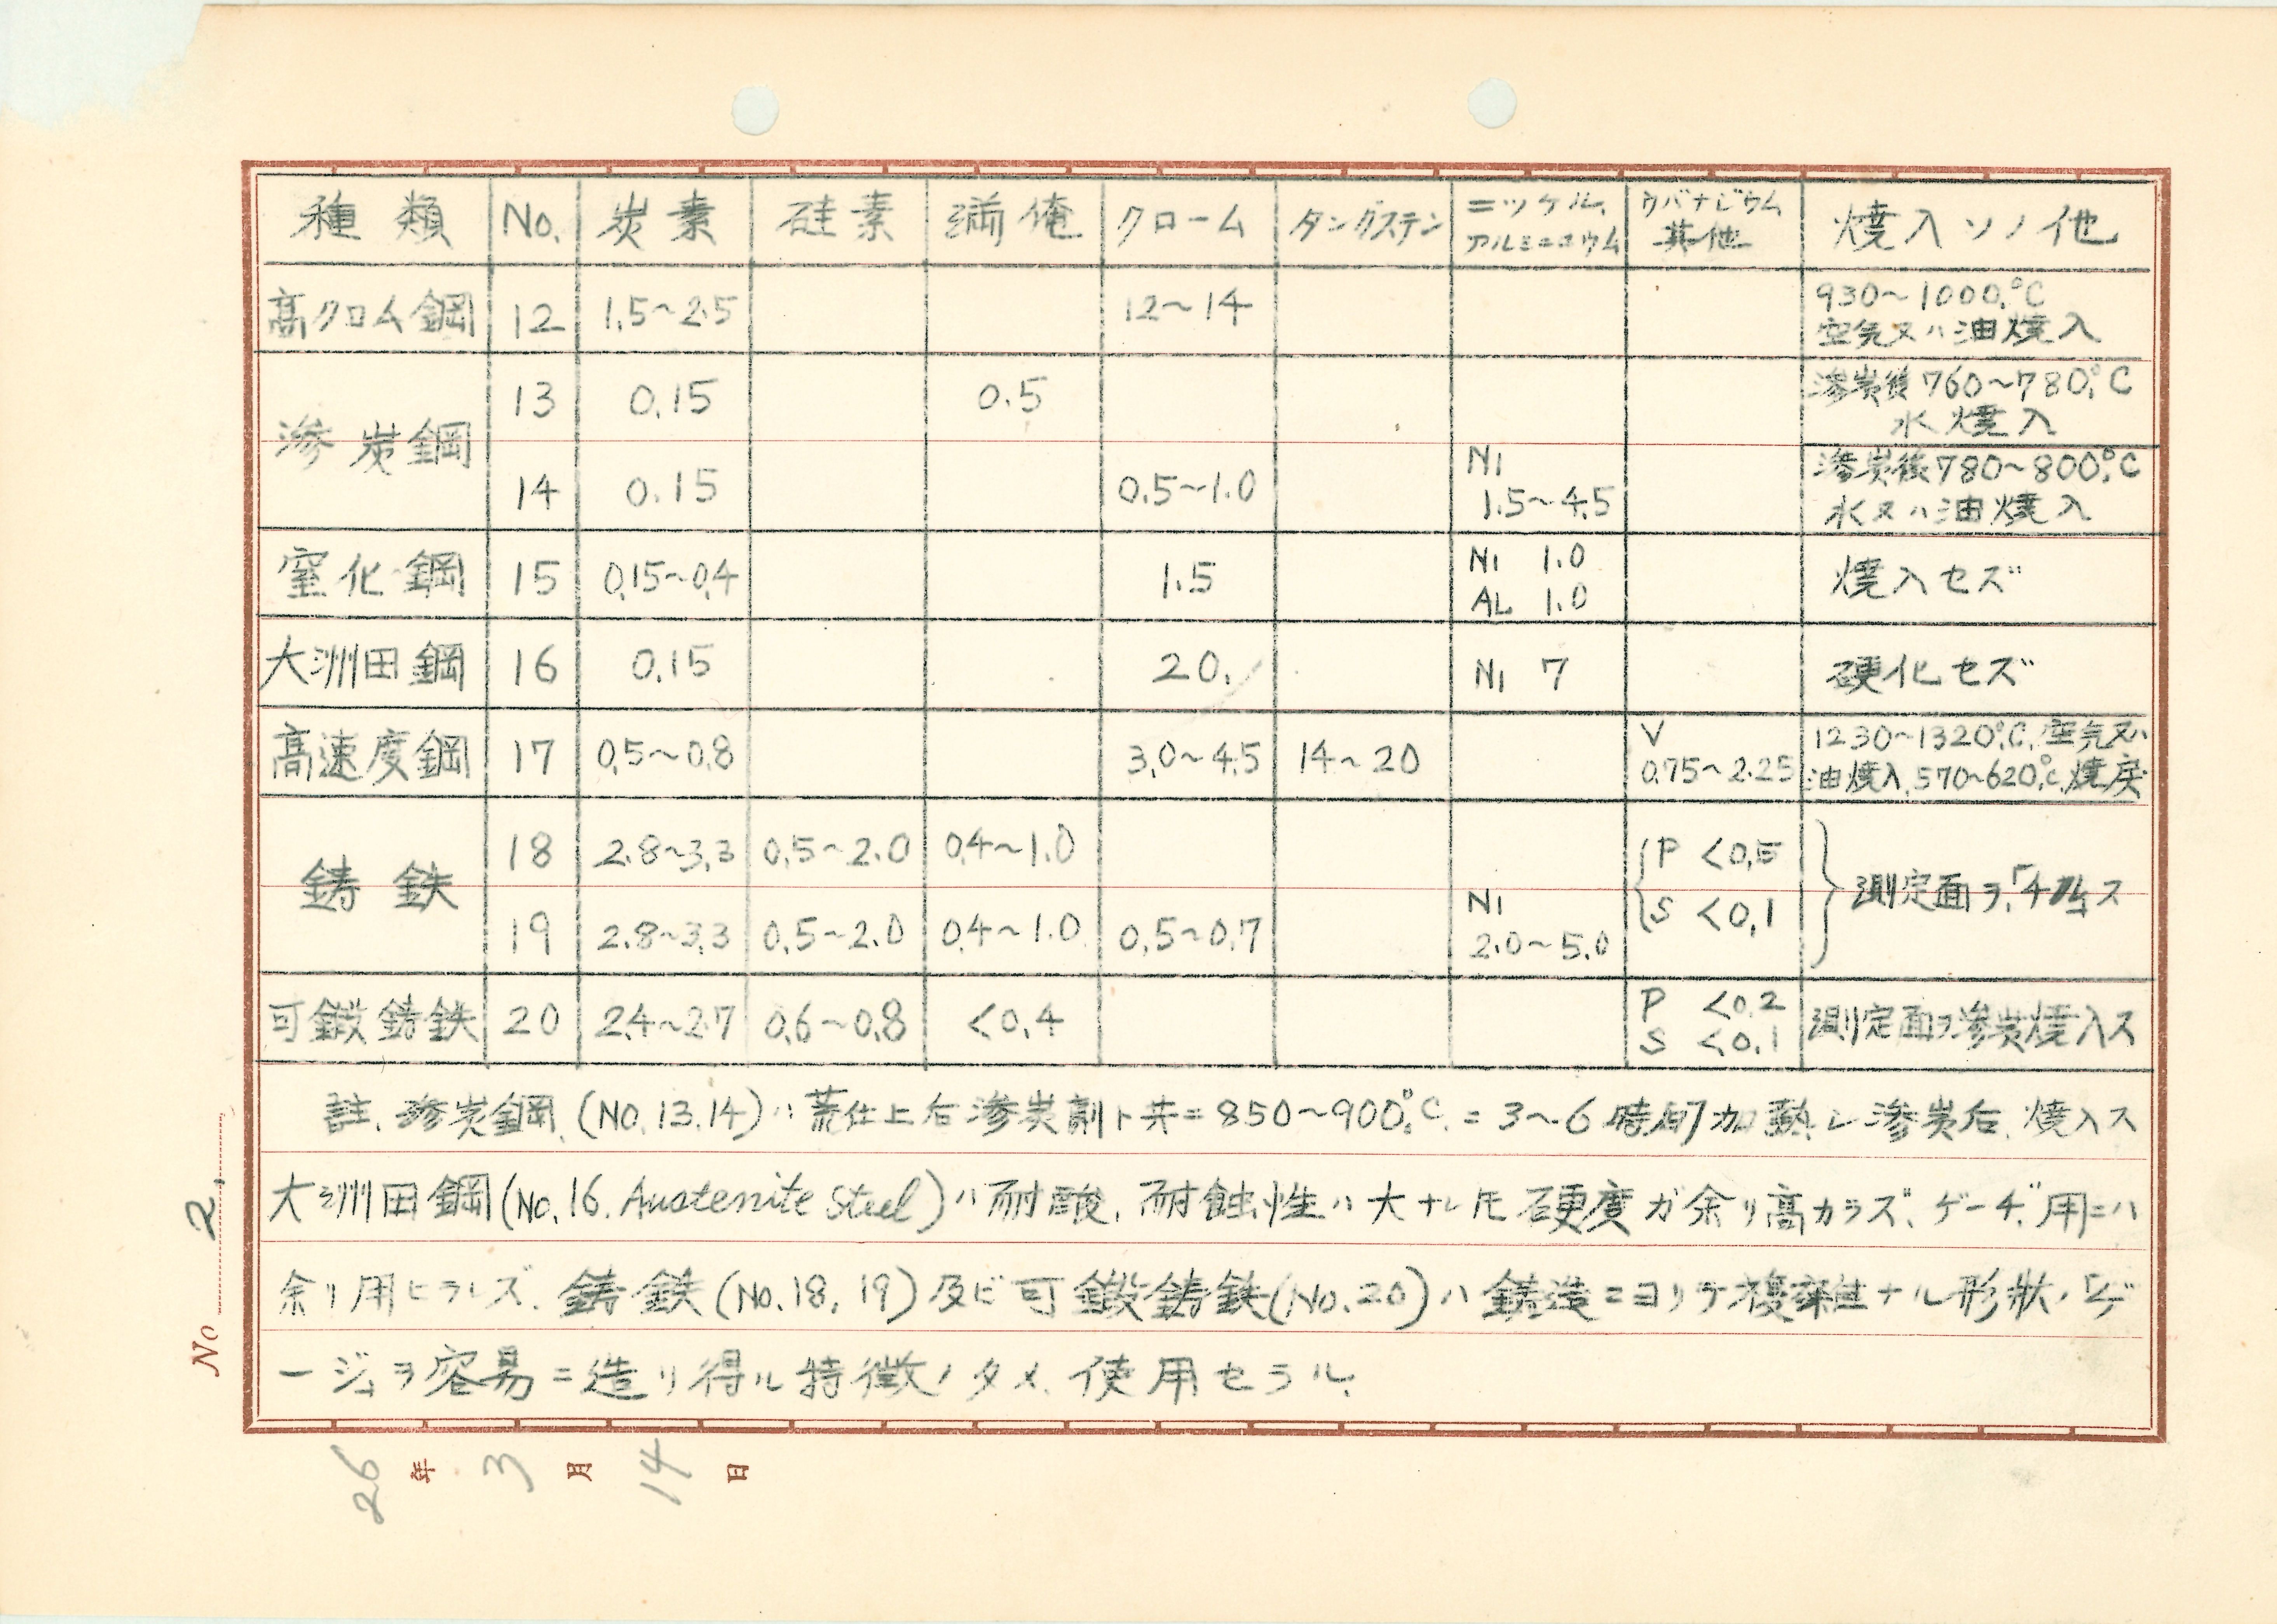 種類 No. 炭素 硅素 満俺 クローム タングステン ニッケル、アルミニュウム ヴバナジウム其他 焼入ソノ他
高クロム鋼 12 1.5~2.5 12~14 930~1000.°C 空気又ハ油焼入
滲炭鋼 13 0.15 0.5 滲炭後760~780.°C 水焼入
14 0.15 0.5~1.0 Ni 1.5~4.5 滲炭後780~800.°C 水又ハ油焼入
窒化鋼 15 0.15~0.4 1.5 Ni 1.0 AL 1.0 焼入セズ
大洲田鋼 16 0.15 20. Ni 7 硬化セズ
高速度鋼 17 0.5~0.8 3.0~4.5 14~20 V 0.75~2.25 1230~1320.°C. 空気又ハ油焼入. 570~620.°C. 焼戻
鋳鉄 18 2.8~3.3 0.5~2.0 0.4~1.0 P <0.5 S <0.1 測定面ヲ「チルス
19 2.8~3.3 0.5~2.0 0.4~1.0 0.5~0.7 Ni 2.0~5.0
可鍛鋳鉄 20 2.4~2.7 0.6~0.8 <0.4 P <0.2 S <0.1 測定面ヲ滲炭焼入ス
註. 滲炭鋼. (NO. 13.14)ハ荒仕上后滲炭剤ト共ニ850~900.°C.ニ3~6時間加熱シ滲炭后. 焼入ス
大洲田鋼(No. 16. Austenite Steel)ハ耐酸. 耐蝕性ハ大ナレ𪜈硬度ガ余リ高カラズ. ゲーヂ.用ニハ
余リ用ヒラレズ. 鋳鉄(No.18, 19)及ビ可鍛鋳鉄(No.20)ハ鋳造ニヨリテ複雑ナル形状ノ「ゲ
ージヲ容易ニ造リ得ル特徴ノタメ. 使用セラル.
No 2.
26年3月14日